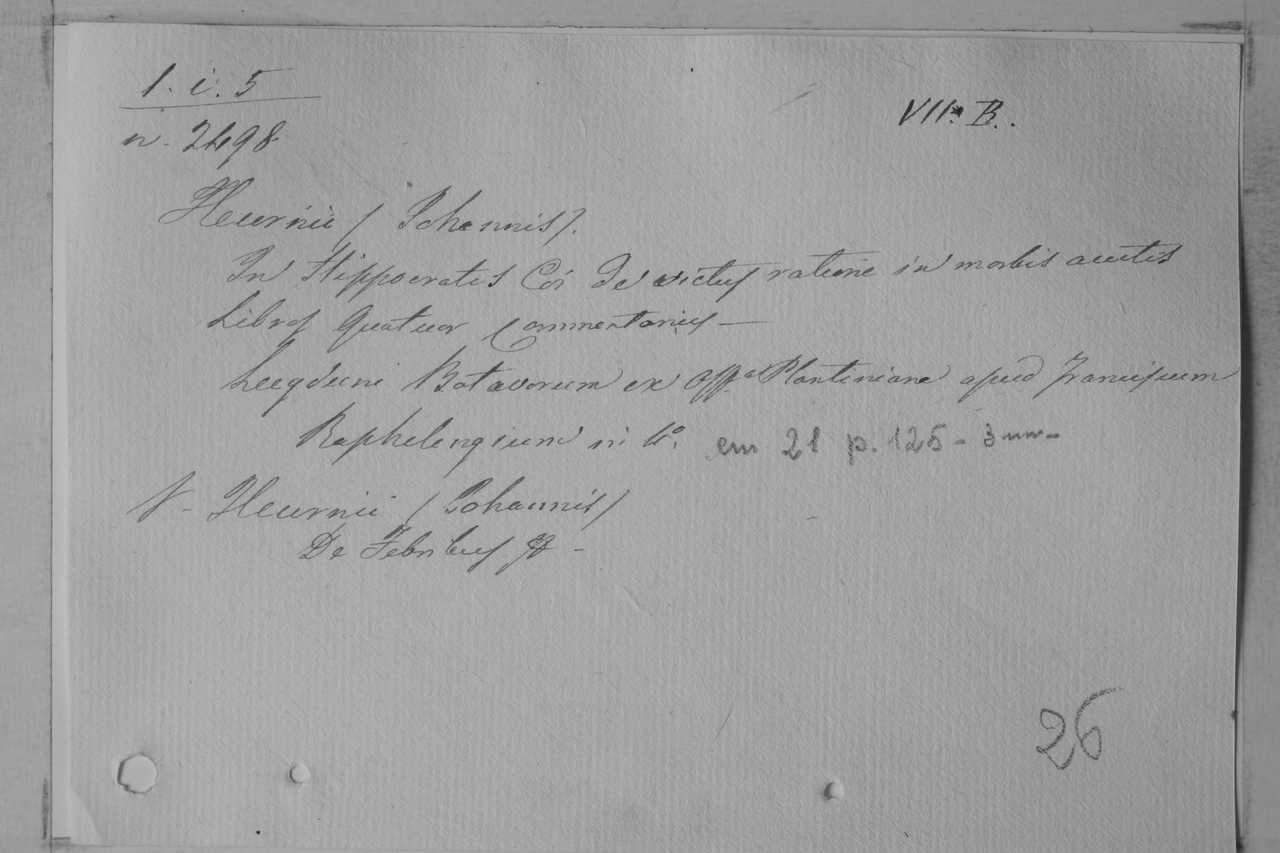 1. i. 5
VIIa B.
n. 2498
Heurnii (Iohannis).
In Hippocratis Coi De victus ratione in morbis acutis
Libros Quatuor Commentarius —
Lugduni Batavorum ex offa Plantiniana apud Franciscum
Raphelengium in 4o. cm 21 p. 125 - 3 nn -
V - Heurnii (Iohannis)
De Febribus
26